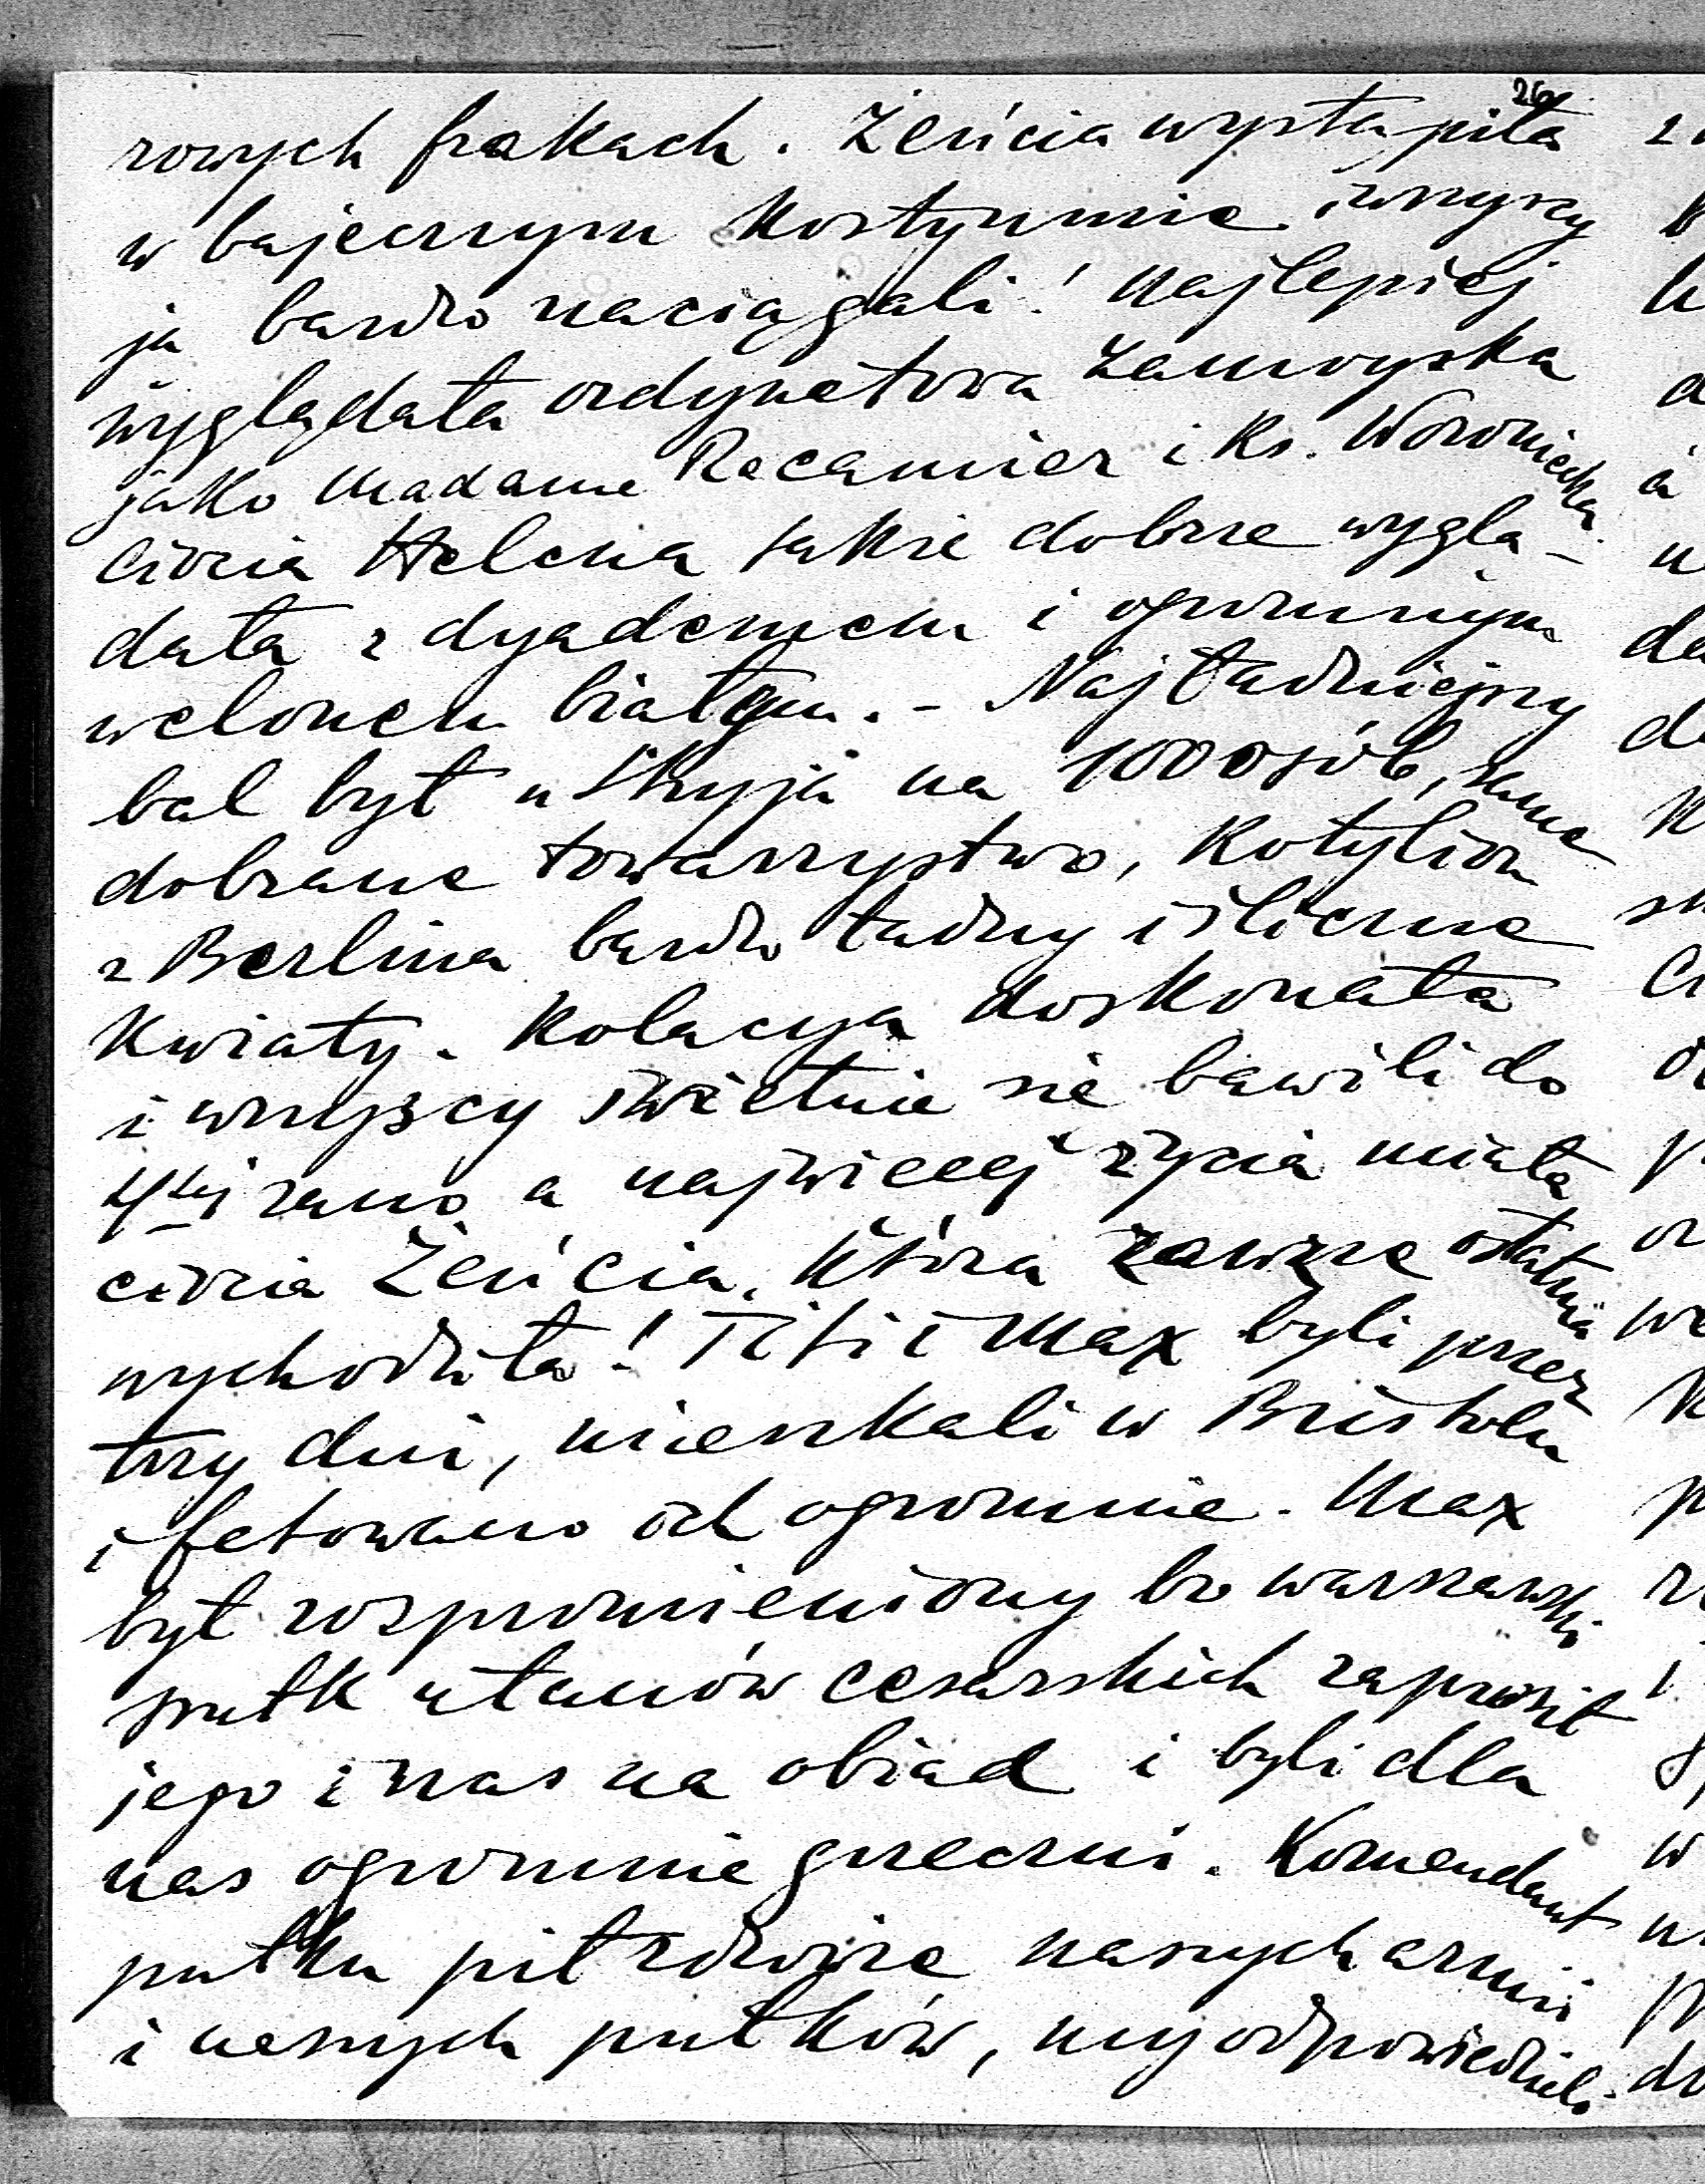 26
rowych frakach. Żeńcia wystąpiła
w bajecznym kostyumie i wszyscy
ją bardzo naciągali! Najlepiej
wyglądała ordynatowa Zamoyska
jako Madame Recamier i Ks. Woroniecka.
Ciocia Helena także dobrze wyglą-
dała z dyademem i ogromnym
welonem białym. - Najładniejszy
bal był u Stryja na 1000 osób, same
dobrane towarzystwo, Kotylion
z Berlina bardzo ładny i śliczne
Kwiaty. Kolacya doskonała
i wszyscy świetnie się bawili do
4tej rano a najwięcej życia miała
ciocia Żeńcia, która zawsze ostatnia
wychodziła! Titi i Max byli przez
trzy dni, mieszkali w Bristolu
i fetowano ich ogromnie. Max
był rozpromieniony bo warszawski
pułk ułanów cesarskich zaprosił
jego i nas na obiad i byli dla
nas ogromnie grzeczni. Komendant
pułku pił zdrowie naszych armii
i naszych pułków, my odpowiedzieli.